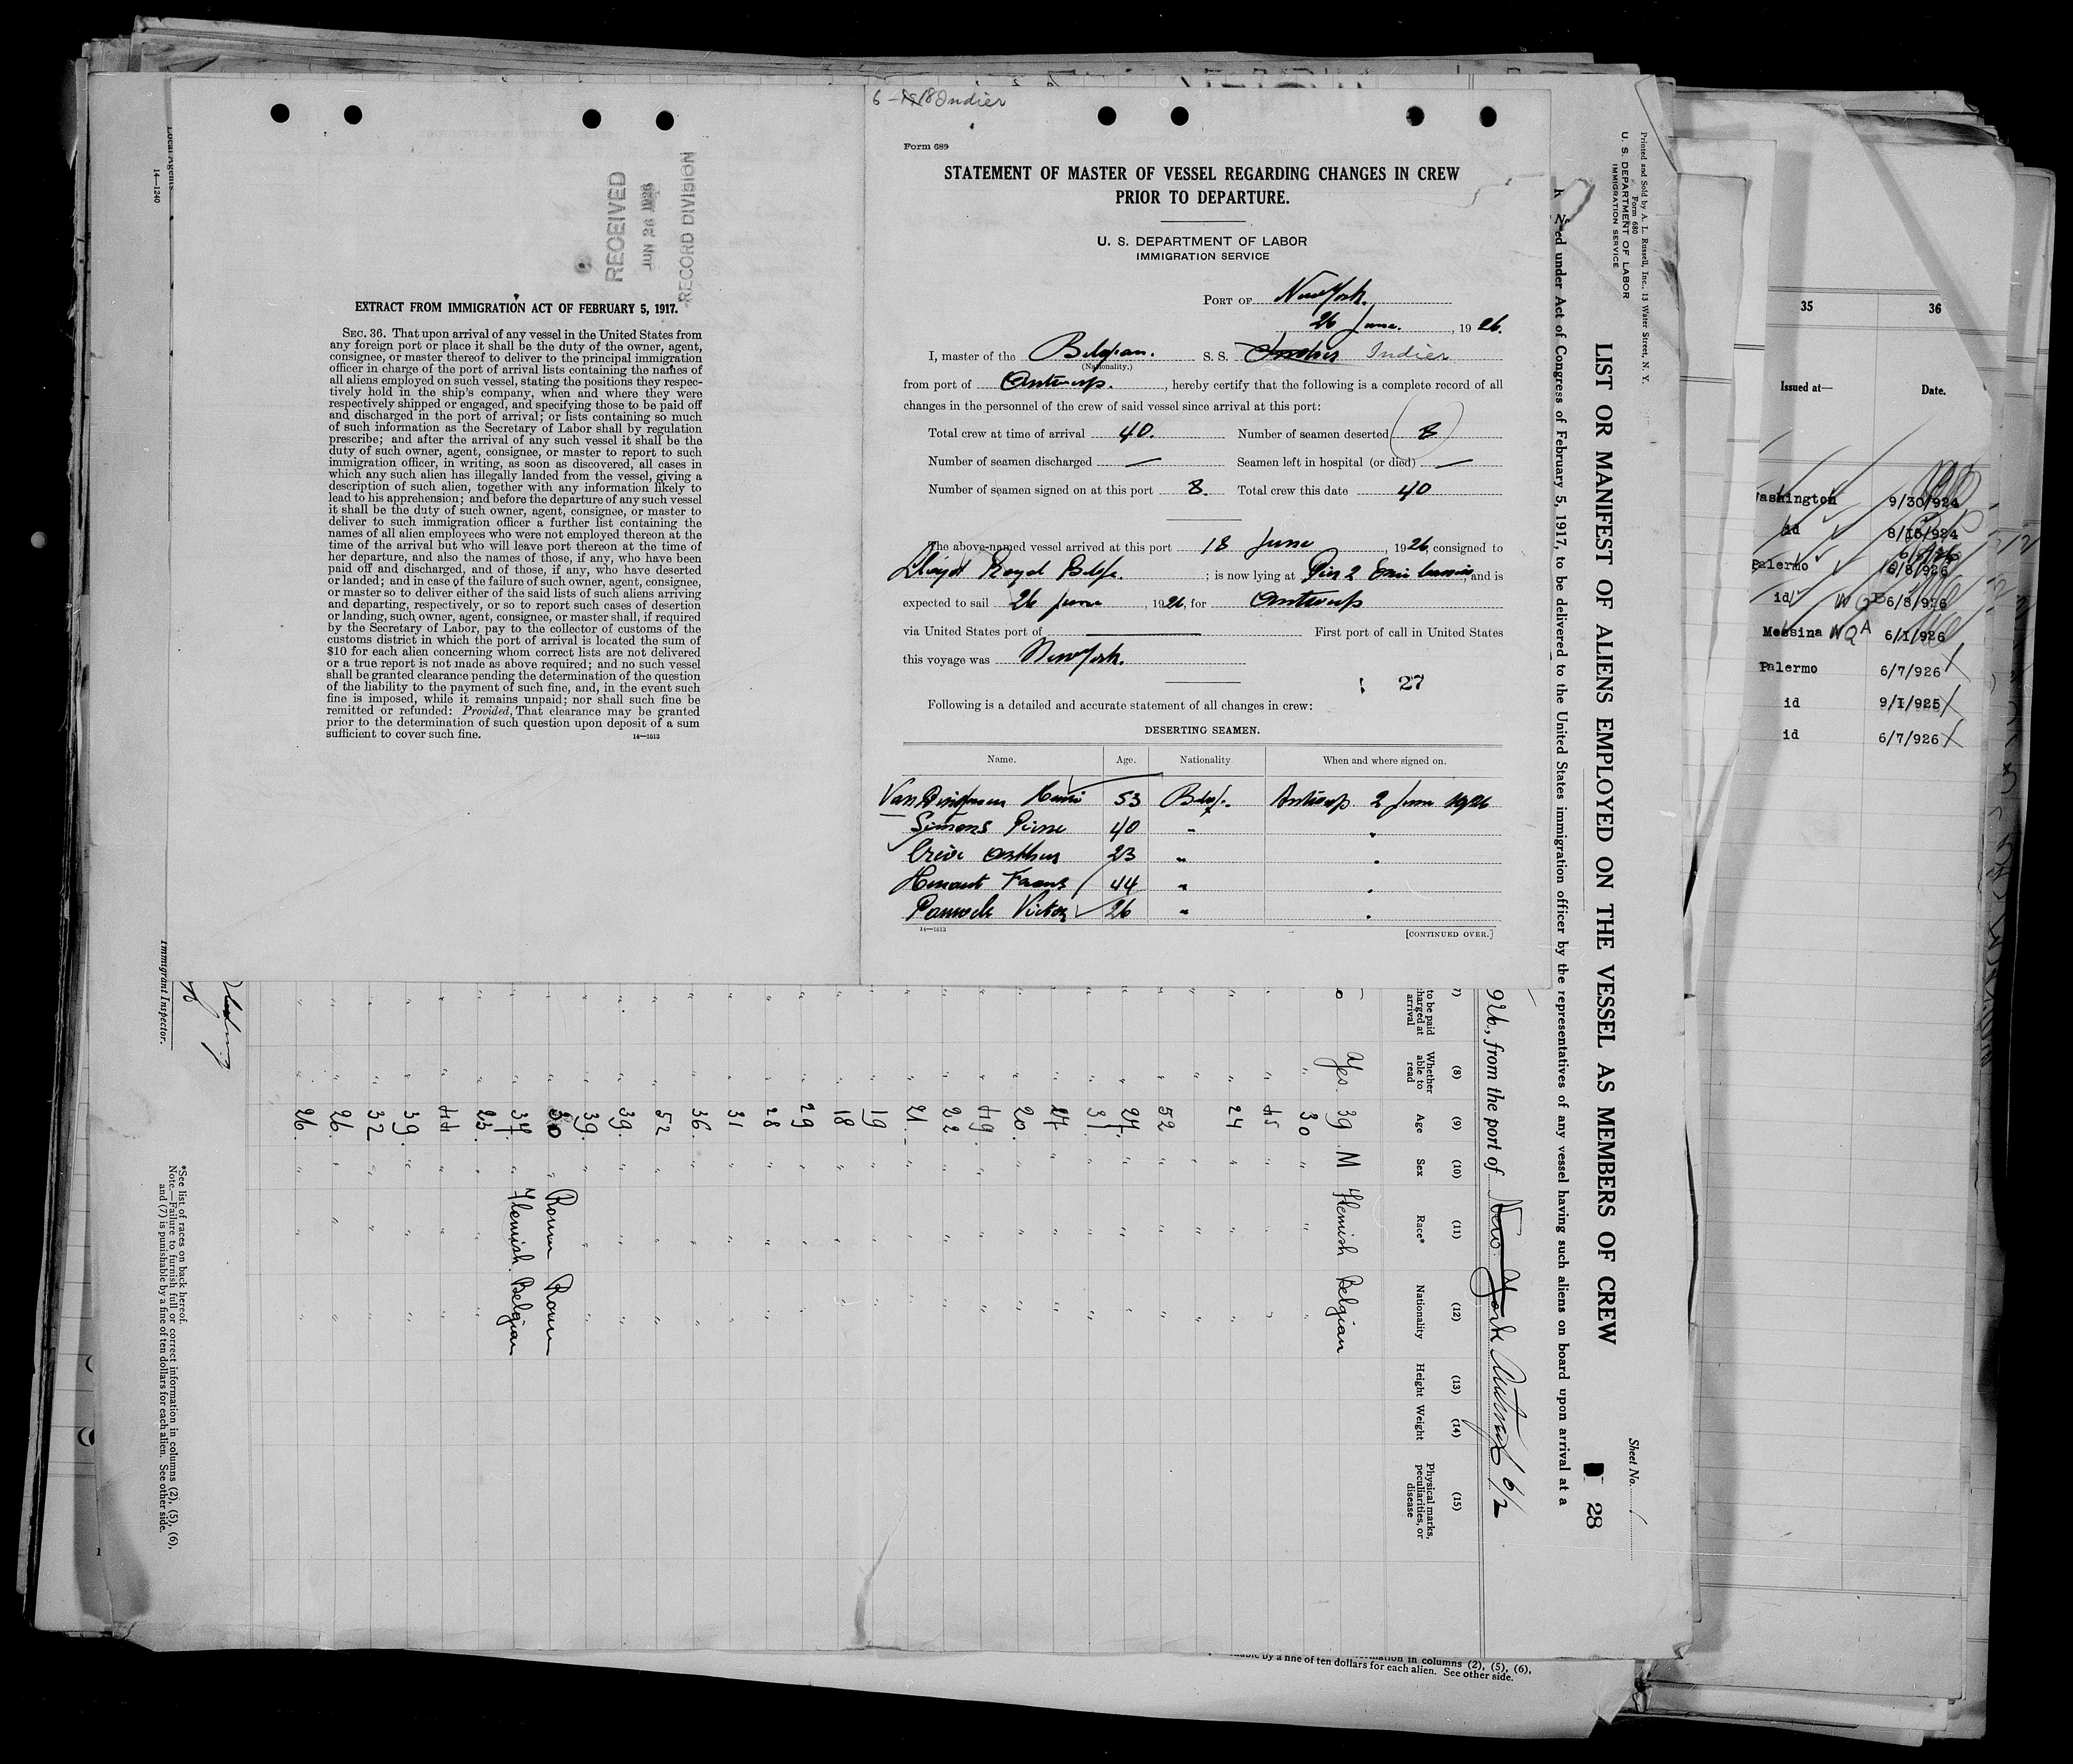 Local Agents
14—1240
RECEIVED
JUN 26 1926
RECORD DIVISION
EXTRACT FROM IMMIGRATION ACT OF FEBRUARY 5, 1917.
SEC. 36. That upon arrival of any vessel in the United States from
any foreign port or place it shall be the duty of the owner, agent,
consignee, or master thereof to deliver to the principal immigration
officer in charge of the port of arrival lists containing the names of
all aliens employed on such vessel, stating the positions they respec-
tively hold in the ship's company, when and where they were
respectively shipped or engaged, and specifying those to be paid off
and discharged in the port of arrival; or lists containing so much
of such information as the Secretary of Labor shall by regulation
prescribe; and after the arrival of any such vessel it shall be the
duty of such owner, agent, consignee, or master to report to such
immigration officer, in writing, as soon as discovered, all cases in
which any such alien has illegally landed from the vessel, giving a
description of such alien, together with any information likely to
lead to his apprehension; and before the departure of any such vessel
it shall be the duty of such owner, agent, consignee, or master to
deliver to such immigration officer a further list containing the
names of all alien employees who were not employed thereon at the
time of the arrival but who will leave port thereon at the time of
her departure, and also the names of those, if any, who have been
paid off and discharged, and of those, if any, who have deserted
or landed; and in case of the failure of such owner, agent, consignee,
or master so to deliver either of the said lists of such aliens arriving
and departing, respectively, or so to report such cases of desertion
or landing, such owner, agent, consignee, or master shall, if required
by the Secretary of Labor, pay to the collector of customs of the
customs district in which the port of arrival is located the sum of
$10 for each alien concerning whom correct lists are not delivered
or a true report is not made as above required; and no such vessel
shall be granted clearance pending the determination of the question
of the liability to the payment of such fine, and, in the event such
fine is imposed, while it remains unpaid; nor shall such fine be
remitted or refunded: Provided, That clearance may be granted
prior to the determination of such question upon deposit of a sum
sufficient to cover such fine.
14—1613
Indier
Form 689
STATEMENT OF MASTER OF VESSEL REGARDING CHANGES IN CREW
PRIOR TO DEPARTURE.
U. S. DEPARTMENT OF LABOR
IMMIGRATION SERVICE
PORT OF New York.
26 June. , 19 26.
I, master of the Belgian. S. S. Indier Indier
(Nationality.)
from port of Antwerp. , hereby certify that the following is a complete record of all
changes in the personnel of the crew of said vessel since arrival at this port:
Total crew at time of arrival 40. Number of seamen deserted 8
Number of seamen discharged — Seamen left in hospital (or died) —
Number of seamen signed on at this port 8. Total crew this date 40
The above-named vessel arrived at this port 18 June , 1926, consigned to
Lloyd Royal Belge. ; is now lying at Pier 2 Erie , and is
expected to sail 26 June , 1926, for Antwerp
via United States port of First port of call in United States
this voyage was New York.
27
Following is a detailed and accurate statement of all changes in crew:
DESERTING SEAMEN.
Name. Age. Nationality When and where signed on.
Henri 53 Belg. Antwerp 2 June 1926
Simons Pierre 40 " "
Arthur 23 " "
Frans 44 " "
Victor 26 " "
14—1613
[CONTINUED OVER.]
Printed and Sold by A. L. Russell, Inc., 13 Water Street, N. Y.
Form 680
U. S. DEPARTMENT OF LABOR
IMMIGRATION SERVICE
Sheet No. 1
LIST OR MANIFEST OF ALIENS EMPLOYED ON THE VESSEL AS MEMBERS OF CREW
28
ed under Act of Congress of February 5, 1917, to be delivered to the United States immigration officer by the representatives of any vessel having such aliens on board upon arrival at a
926., from the port of New York Antwerp 6/2
(8) (9) (10) (11) (12) (13) (14) (15)
to be paid
charged at
arrival
Whether
able to
read
Age Sex Race* Nationality Height Weight
Physical marks,
peculiarities, or
disease
Yes. 39 M Flemish Belgian
" 30 " " "
" 45 " " "
" 24 " " "
" " " "
" 52 " " "
" 24. " " "
" 31 " " "
" 24 " " "
" 20. " " "
" 49. " " "
" 22 " " "
" 21. " " "
" 19 " " "
" 18 " " "
" 29 " " "
" 28 " " "
" 31 " " "
" 36. " " "
" 52 " " "
" 39. " " "
" 39. " " "
" 30 " Roum Roum
" 34. " Flemish. Belgian
" 23. " " "
" 44 " " "
" 39. " " "
" 32. " " "
" 26. " " "
" 26. " " "
Immigrant Inspector.
*See list of races on back hereof.
Note.—Failure to furnish full or correct information in columns (2), (5), (6),
and (7) is punishable by a fine of ten dollars for each alien. See other side.
35 36
Issued at— Date.
Washington 9/30/924
id 8/15/924
Palermo 6/8/926
id 6/8/926
Messina 6/1/926
Palermo 6/7/926
id 9/1/925
id 6/7/926
information in columns (2), (5), (6),
by a fine of ten dollars for each alien. See other side.